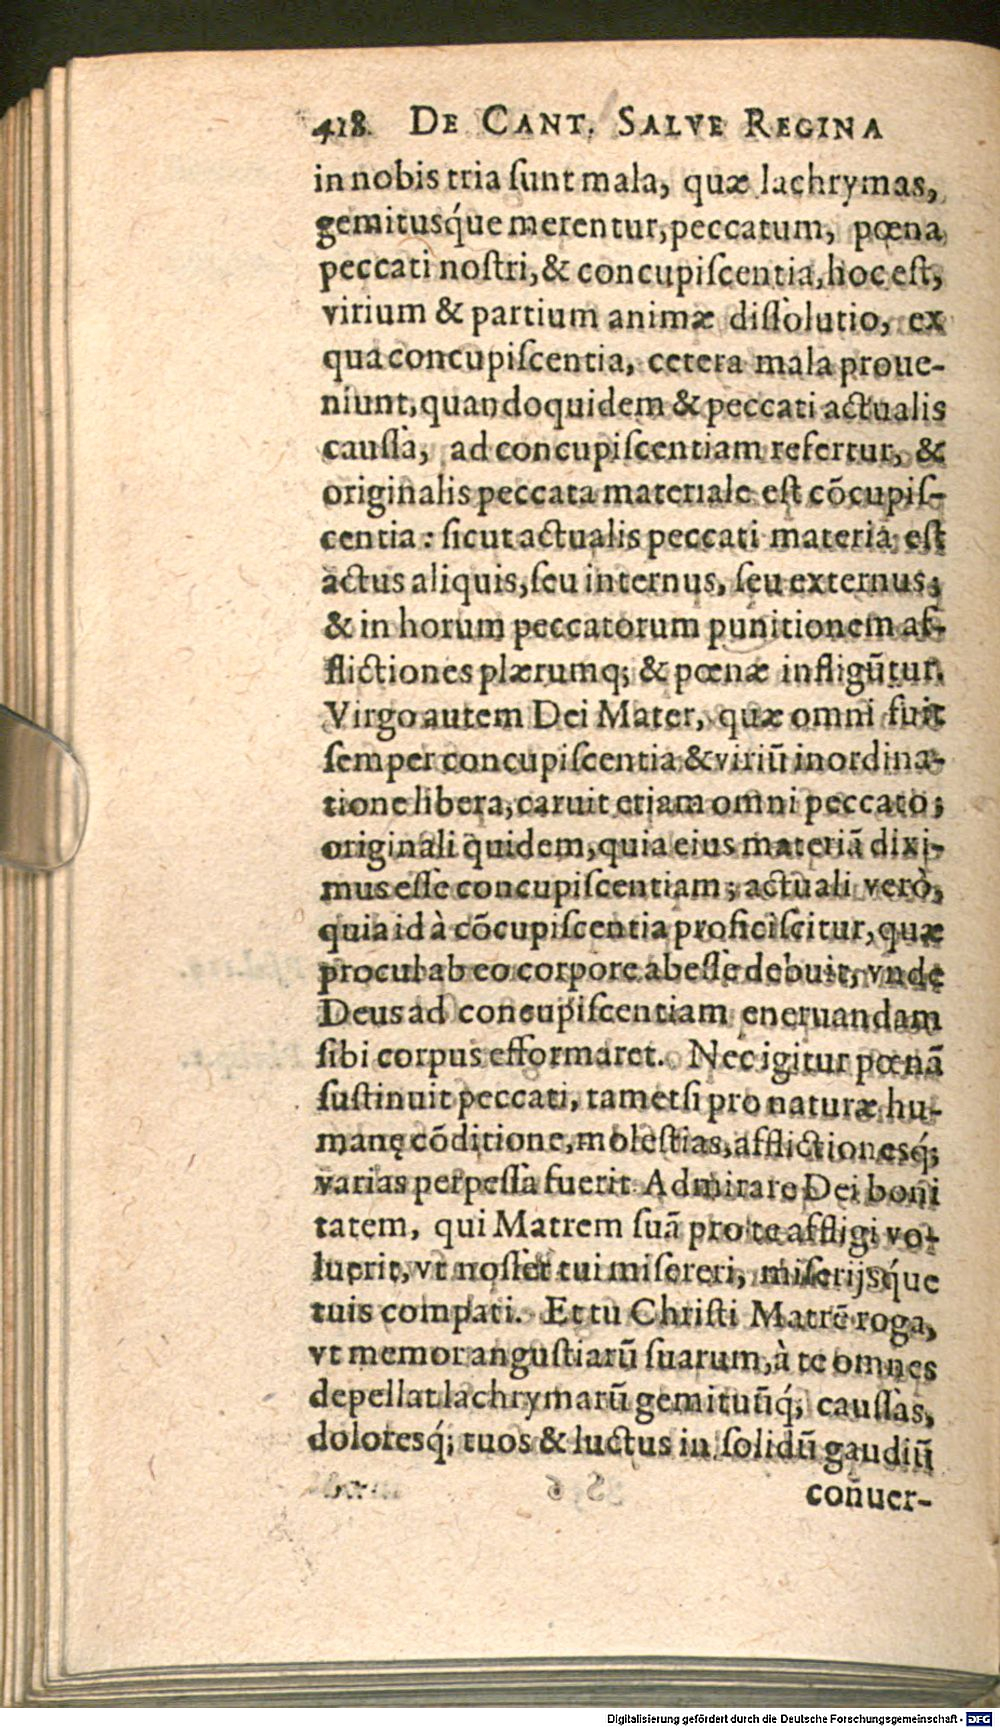 418. DE CANT. SALVE REGINA
in nobis tria ſunt mala, quæ lachrymas,
gemitusq́ue merentur, peccatum, pœna
peccati noſtri, & concupiſcentia, hoc eſt,
virium & partium animæ diſſolutio, ex
qua concupiſcentia, cetera mala proue-
niunt, quandoquidem & peccati actualis
cauſſa, ad concupiſcentiam refertur, &
originalis peccata materiale eſt cõcupiſ-
centia: ſicut actualis peccati materia eſt
actus aliquis, ſeu internus, ſeu externus;
& in horum peccatorum punitionem af-
flictiones plærumq; & pœnæ infligũtur.
Virgo autem Dei Mater, quæ omni fuit
ſemper concupiſcentia & viriũ inordina-
tione libera, caruit etiam omni peccato;
originali quidem, quia eius materiã dixi-
mus eſſe concupiſcentiam; actuali verò,
quia id à cõcupiſcentia proficiſcitur, quæ
procul ab eo corpore abeſſe debuit, vnde
Deus ad concupiſcentiam eneruandam
ſibi corpus efformaret. Nec igitur pœnã
ſuſtinuit peccati, tametſi pro naturæ hu-
manę cõditione, moleſtias, afflictionesq́;
varias perpeſſa fuerit. Admirare Dei boni
tatem, qui Matrem ſuã pro te affligi vo-
luerit, vt noſſet tui miſereri, miſerijsq́ue
tuis compati. Et tu Chriſti Matrẽ roga,
vt memor anguſtiarũ ſuarum, à te omnes
depellat lachrymarũ gemituũq́; cauſſas,
doloresq́; tuos & luctus in ſolidũ gaudiũ
conuer-
Digitalisierung gefördert durch die Deutsche Forschungsgemeinschaft - DFG